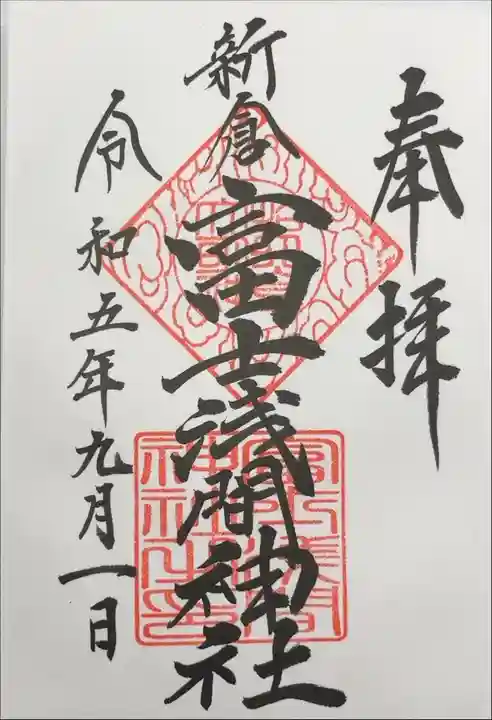 奉拝
新倉
冨士浅間神社
令和五年九月一日